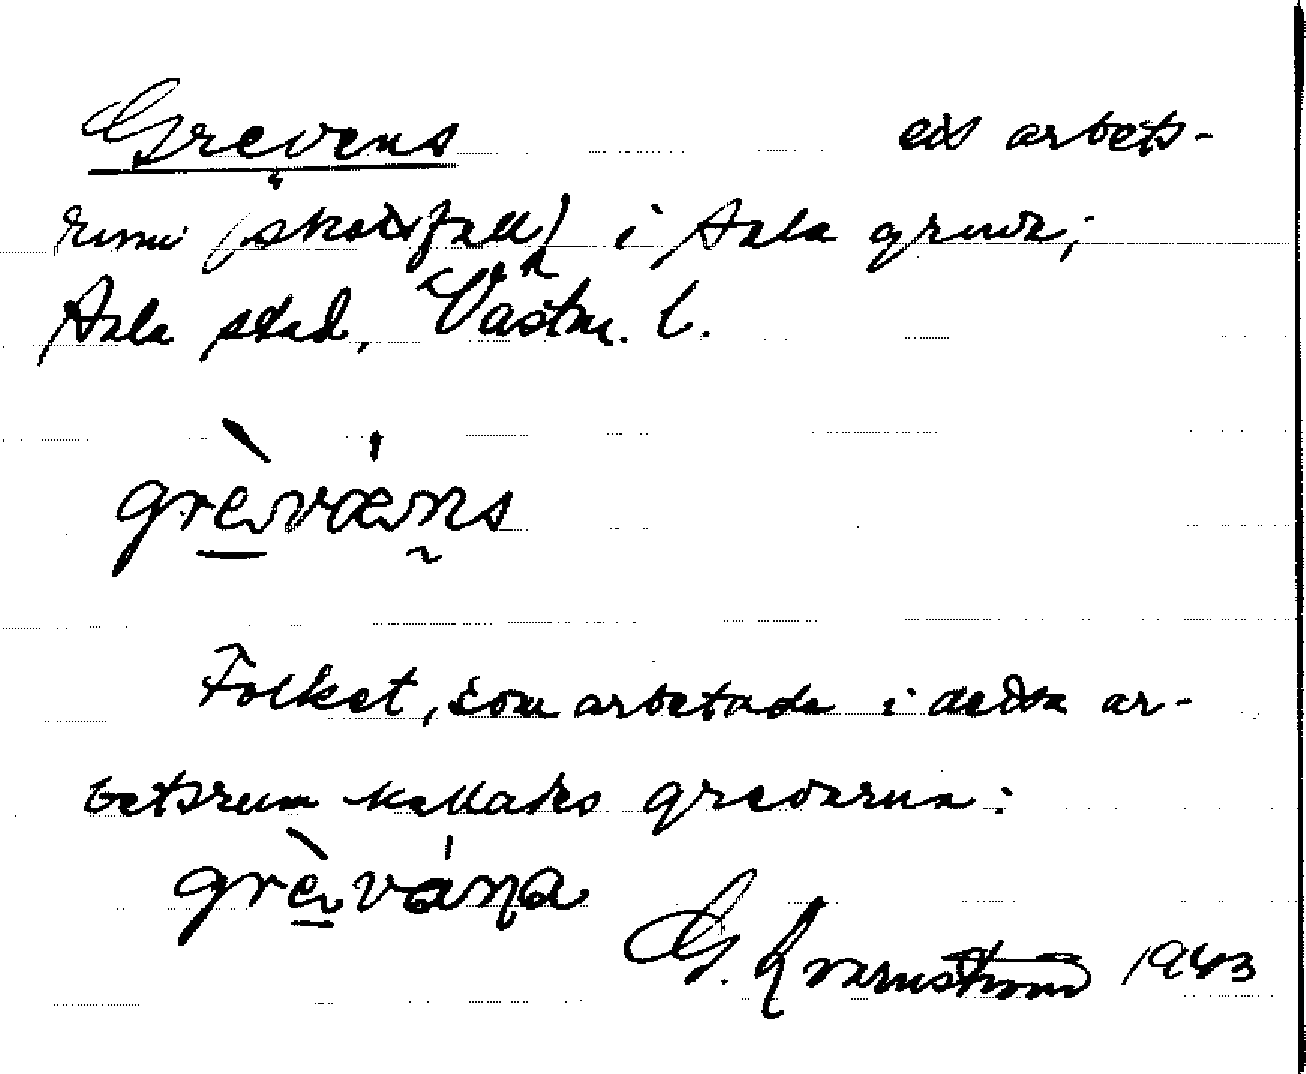 Grevens ett arbets-
rum (skottsfall) i Sala gruva;
Sala stad, Västm. l.
grèvæns
Folket, som arbetade i detta ar-
betsrum kallades grevarna:
grèváṇa
G. Kvarnström 1943